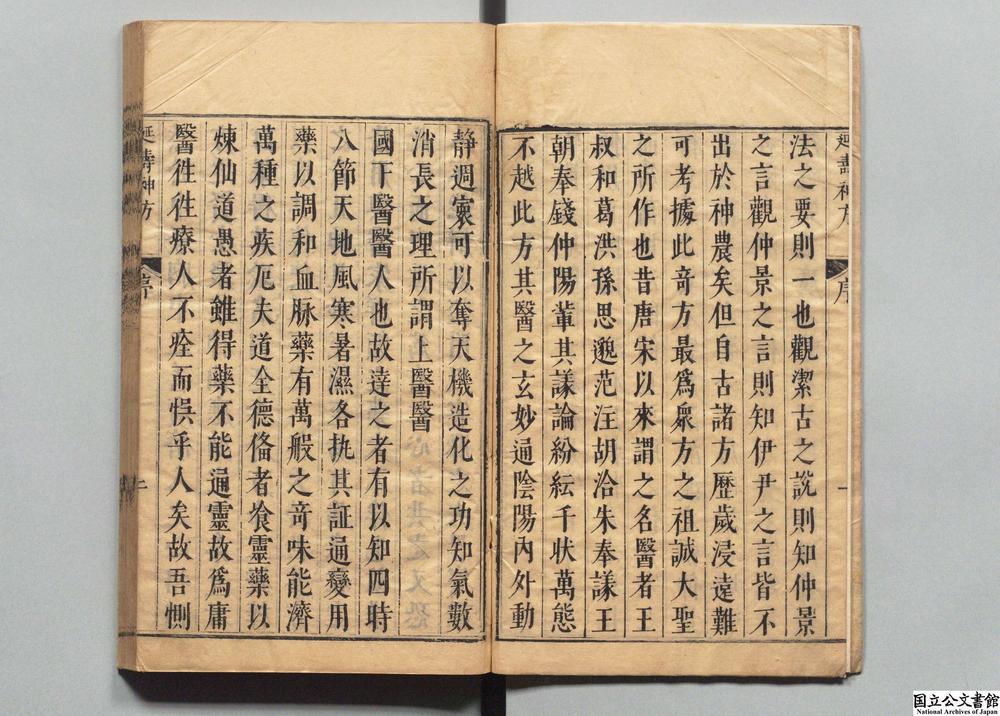 延壽神方
序
一
法之要則一也觀潔古之說則知仲景
之言觀仲景之言則知伊尹之言皆不
出於神農矣但自古諸方歷歲浸遠難
可考據此竒方最爲衆方之祖誠大聖
之所作也昔唐宋以來謂之名醫者王
叔和葛洪孫思邈范汪胡洽朱奉議王
朝奉錢仲陽輩其議論紛紜千狀萬態
不越此方其醫之玄妙通陰陽內外動
靜週寰可以奪天機造化之功知氣數
消長之理所謂上醫醫
國下醫醫人也故達之者有以知四時
八節天地風寒暑濕各執其証通變用
藥以調和血脉藥有萬般之竒味能濟
萬種之疾厄夫道全德俻者飡靈藥以
煉仙道愚者雖得藥不能通靈故爲庸
醫徃徃療人不痊而悞乎人矣故吾惻
延壽神方
序
二
国立公文書館
National Archives of Japan